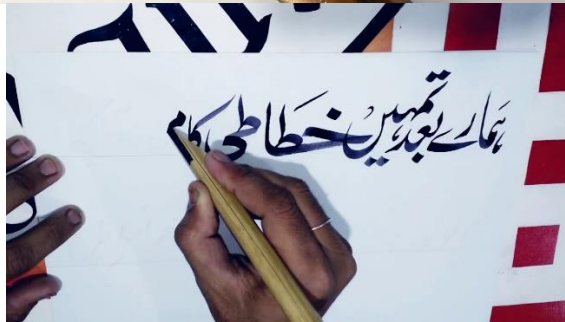 ہمارے بعد تمہیں خطاطی کام